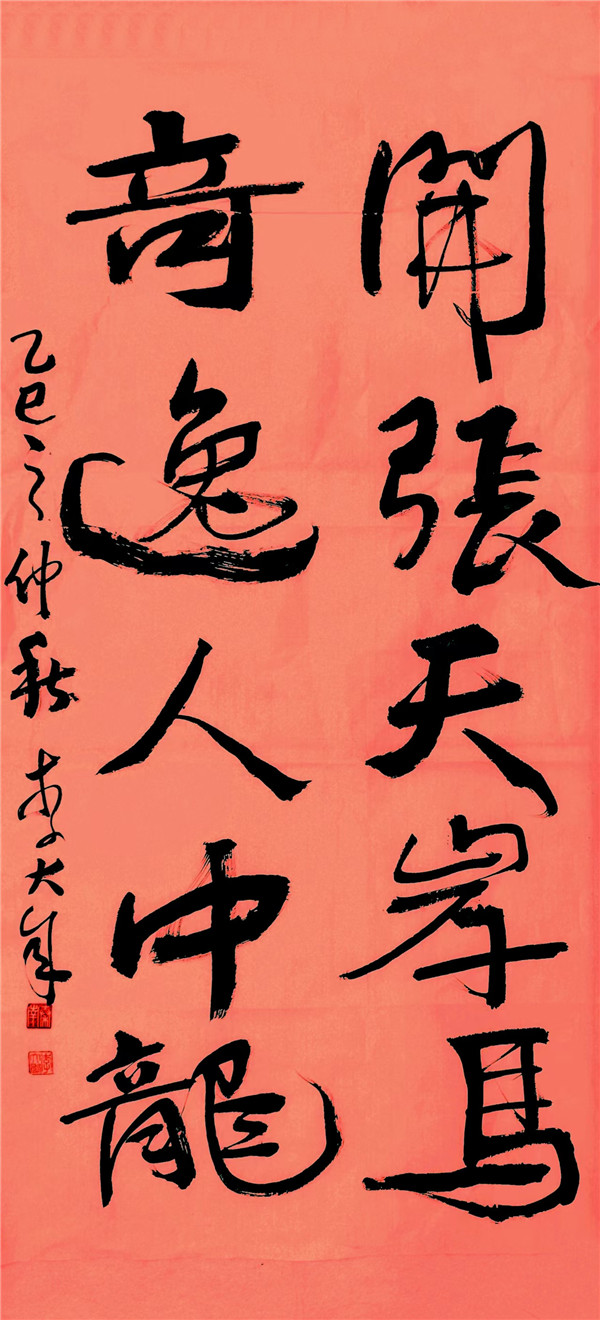 開張天岸馬
奇逸人中龍
乙巳之仲秋 李大峯